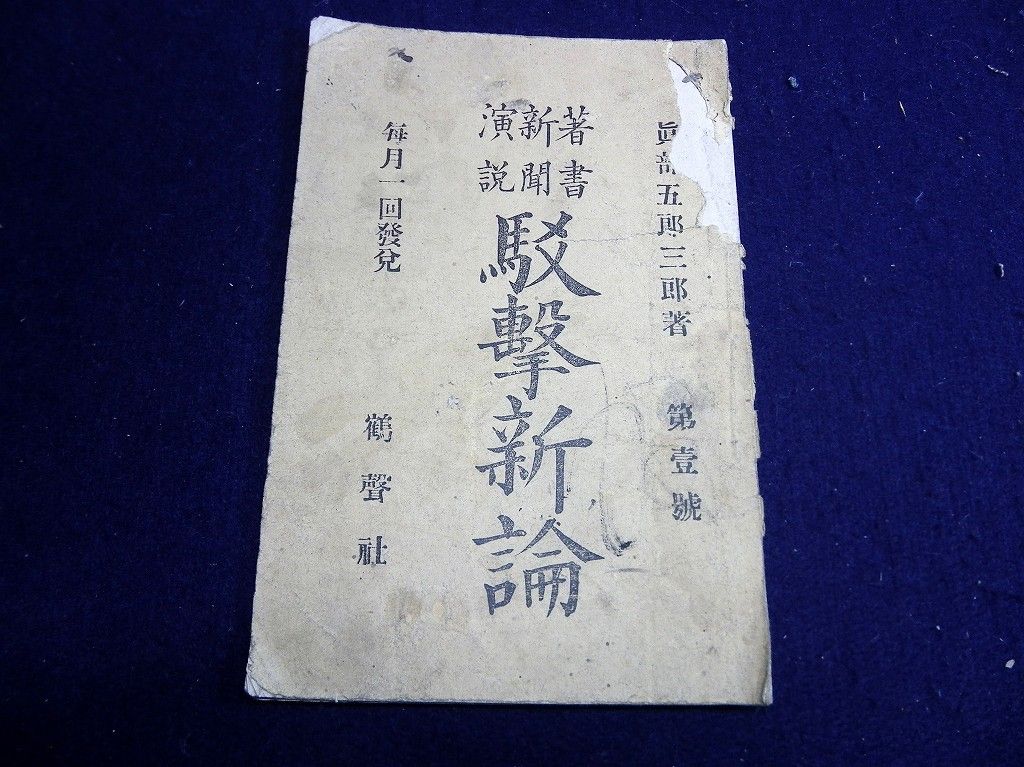 眞部五郎三郎著 第壹號
著書
新聞
演説
駁擊新論
每月一回發兌
鶴聲社